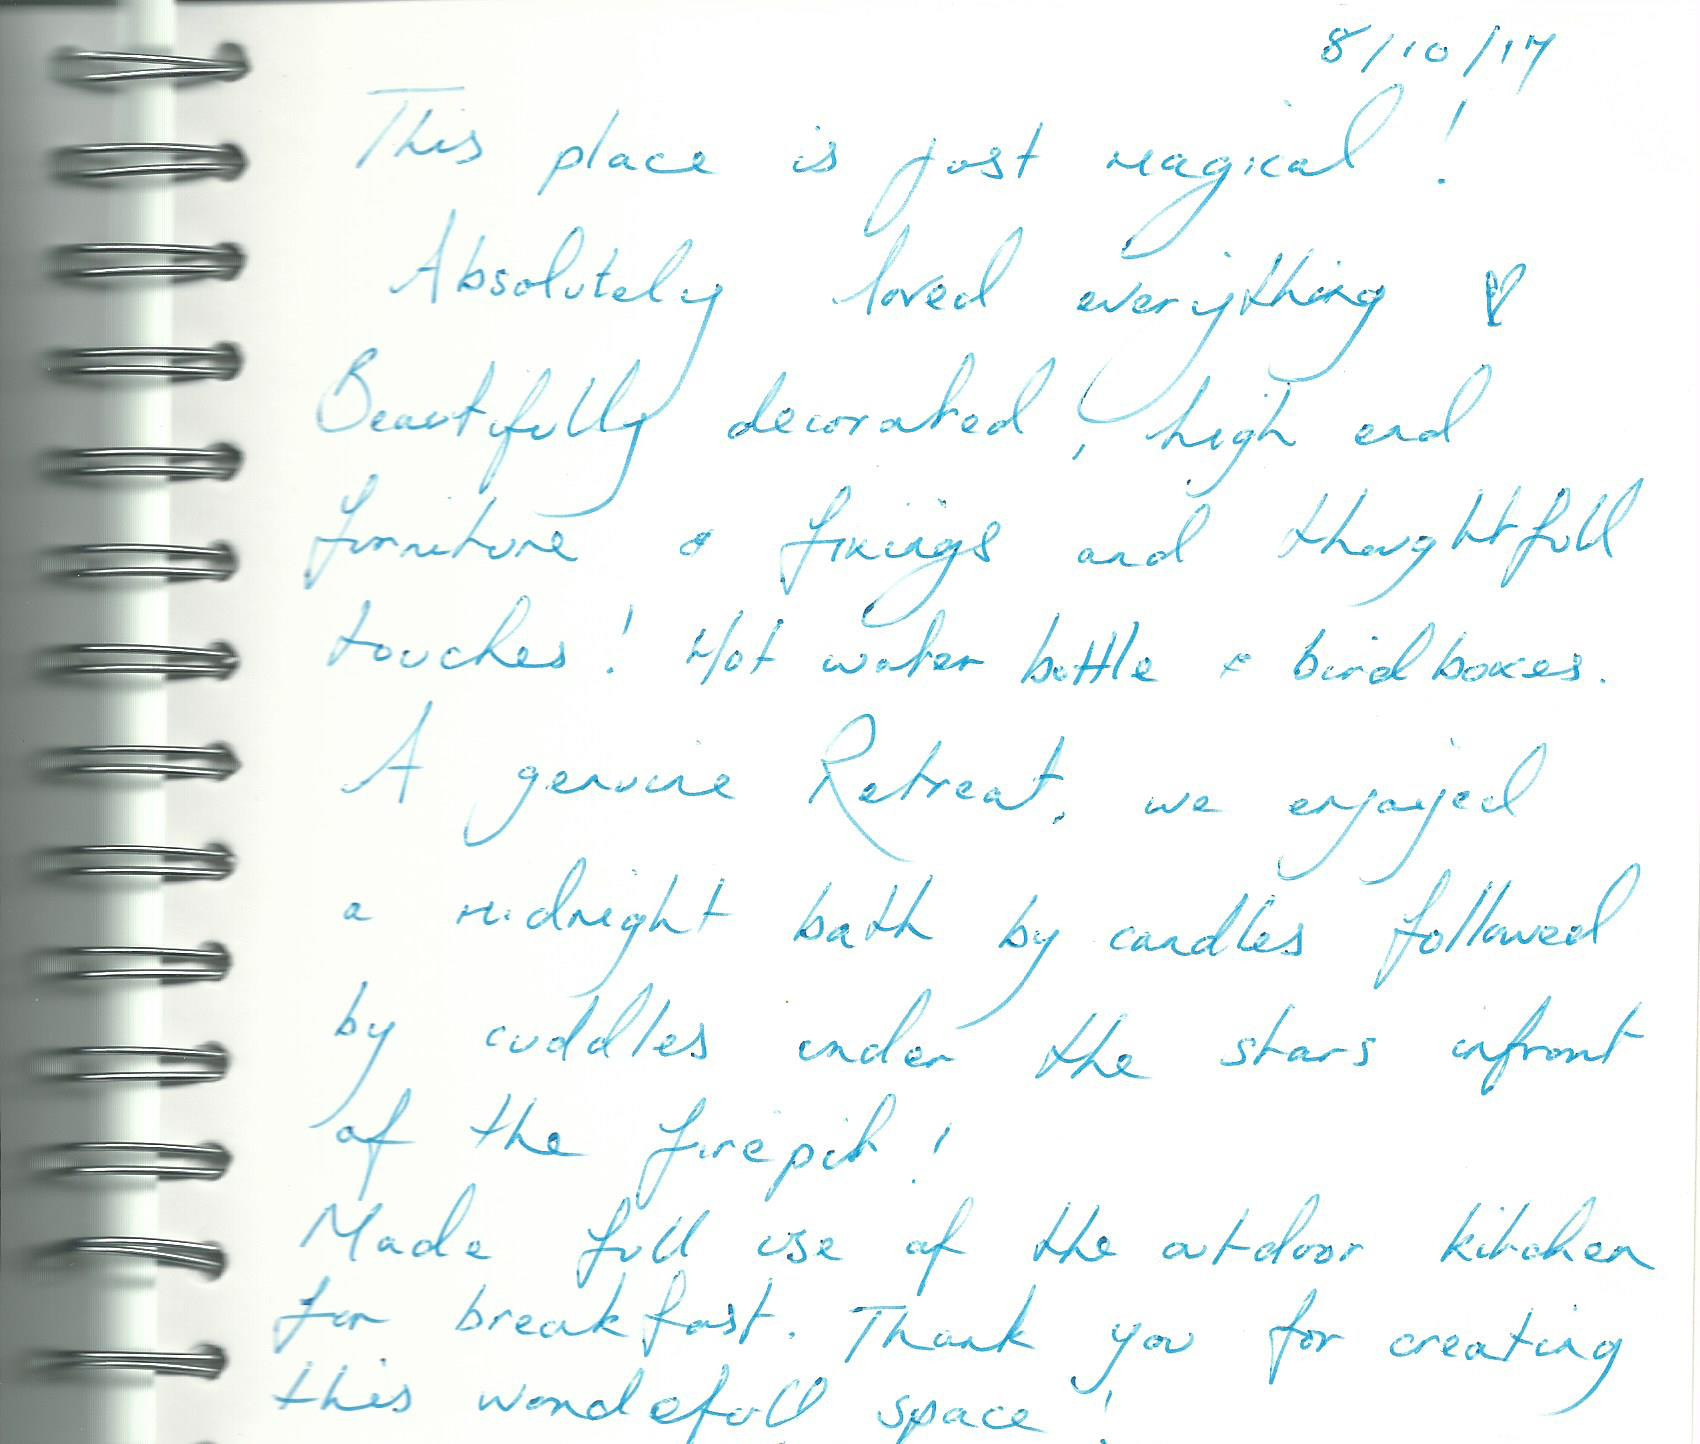 8/10/17
This place is just magical!
Absolutely loved everything ♥
Beautifully decorated, high end
furniture & fixings and thoughtfull
touches! Hot water bottle & bird boxes.
A genuine Retreat, we enjoyed
a midnight bath by candles followed
by cuddles under the stars infront
of the firepit!
Made full use of the outdoor kitchen
for breakfast. Thank you for creating
this wondefull space!